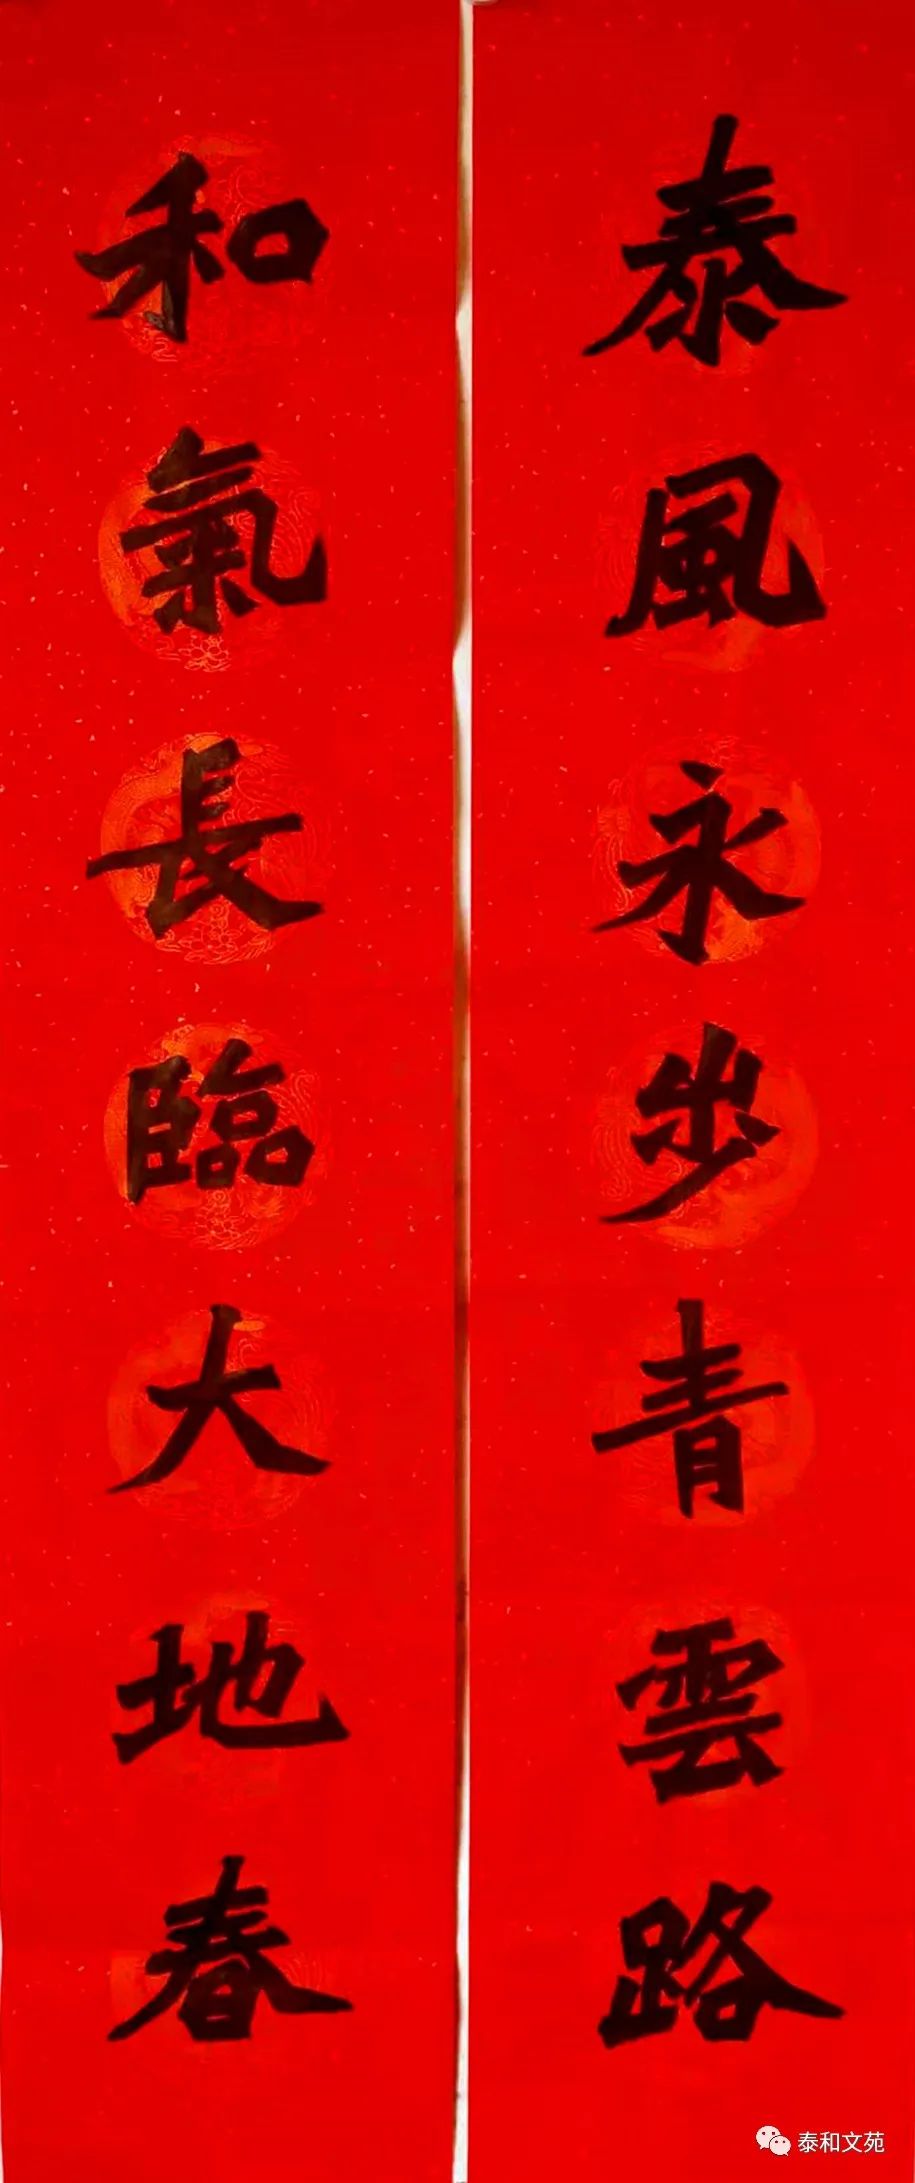 泰風永步青雲路
和氣長臨大地春
泰和文苑